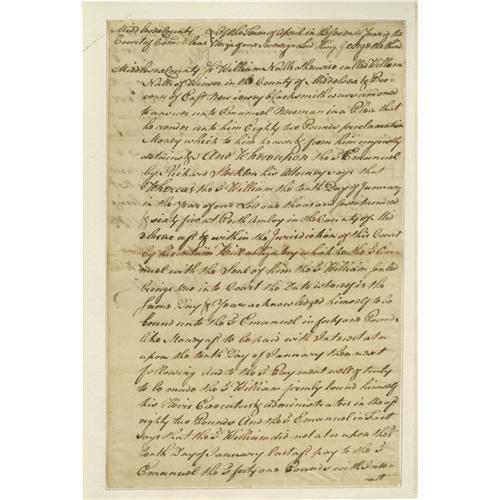 Middlesex County } Of the Term of April in the Seventh Year of the
Court of Com: Pleas } Reign of our Sovereign Lord King George the third
Middlesex County ss William Nalk otherwise called William
Nalk of Winsor in the County of Middlesex & Pro-
vence of East New Jersey blacksmith was summoned
to answer unto Emanuel in a Plea that
he render unto him Eighty two Pounds proclamation
Money which to him he oweth & from him unjustly
detains &c And Whereupon the sd. Emanuel
by Richard Stockton his Attorney says that
Whereas the sd. William the tenth Day of January
in the Year of our Lord one thousand seven hundred
& sixty five at Perth Amboy in the County of Mid
dlesex afd. & within the Jurisdiction of this Court
by his certain Bill obligatory which he the sd. Ema
nuel with the Seal of him the sd. William sealed
brings here into Court the Date whereof is the
same Day & Year acknowledged himself to be
bound unto the sd. Emanuel in forty one Pounds
like Money afd. to be paid with Interest at or
upon the tenth Day of January then next
following And to the sd. Payment well & truly
to be made the sd. William firmly bound himself
his Heirs Executors & administrators in the afd.
eighty two Pounds And the sd. Emanuel in Fact
says that the sd. William did not at or upon the sd.
tenth Day of January last afd. pay to the sd.
Emanuel the sd. forty one Pounds with Inte-
rest